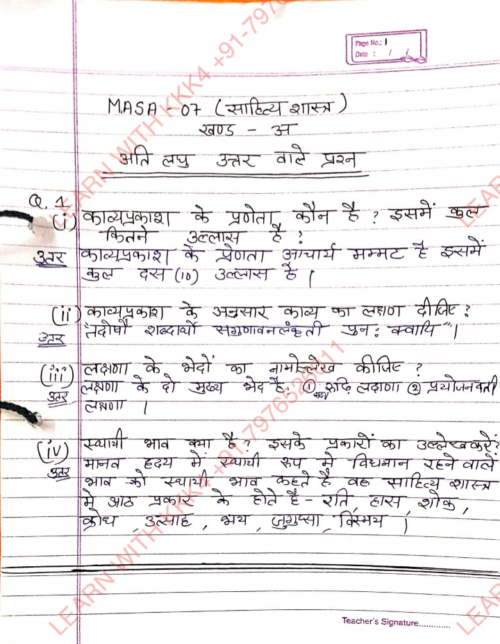 Page No.: 1
Date : / /
MASA-07 (साहित्य शास्त्र)
खण्ड - अ
अति लघु उत्तर वाले प्रश्न
Q. 1
(i) काव्यप्रकाश के प्रणेता कौन है ? इसमें कुल
कितने उल्लास है ?
उत्तर काव्यप्रकाश के प्रेणता आचार्य मम्मट है इसमें
कुल दस (10) उल्लास है।
(ii) काव्यप्रकाश के अनुसार काव्य का लक्षण दीजिए :
उत्तर "तदोषौ शब्दार्थो सगुणावनलंकृती पुन: क्वापि"।
(iii) लक्षणा के भेदों का नामोल्लेख कीजिए ?
उत्तर लक्षणा के दो मुख्य भेद है: ① रूढि लक्षणा ② प्रयोजनवती
लक्षणा ।
(iv) स्थायी भाव क्या है ? इसके प्रकारों का उल्लेख करें?
उत्तर मानव हृदय में स्थायी रूप में विधमान रहने वाले
भाव को स्थायी भाव कहते है वह साहित्य शास्त्र
मे आठ प्रकार के होते है - रति, हास, शोक,
क्रोध, उत्साह, भय, जुगुप्सा, विस्मय ।
Teacher's Signature.............
LEARN WITH KKK4 +91-7976528811